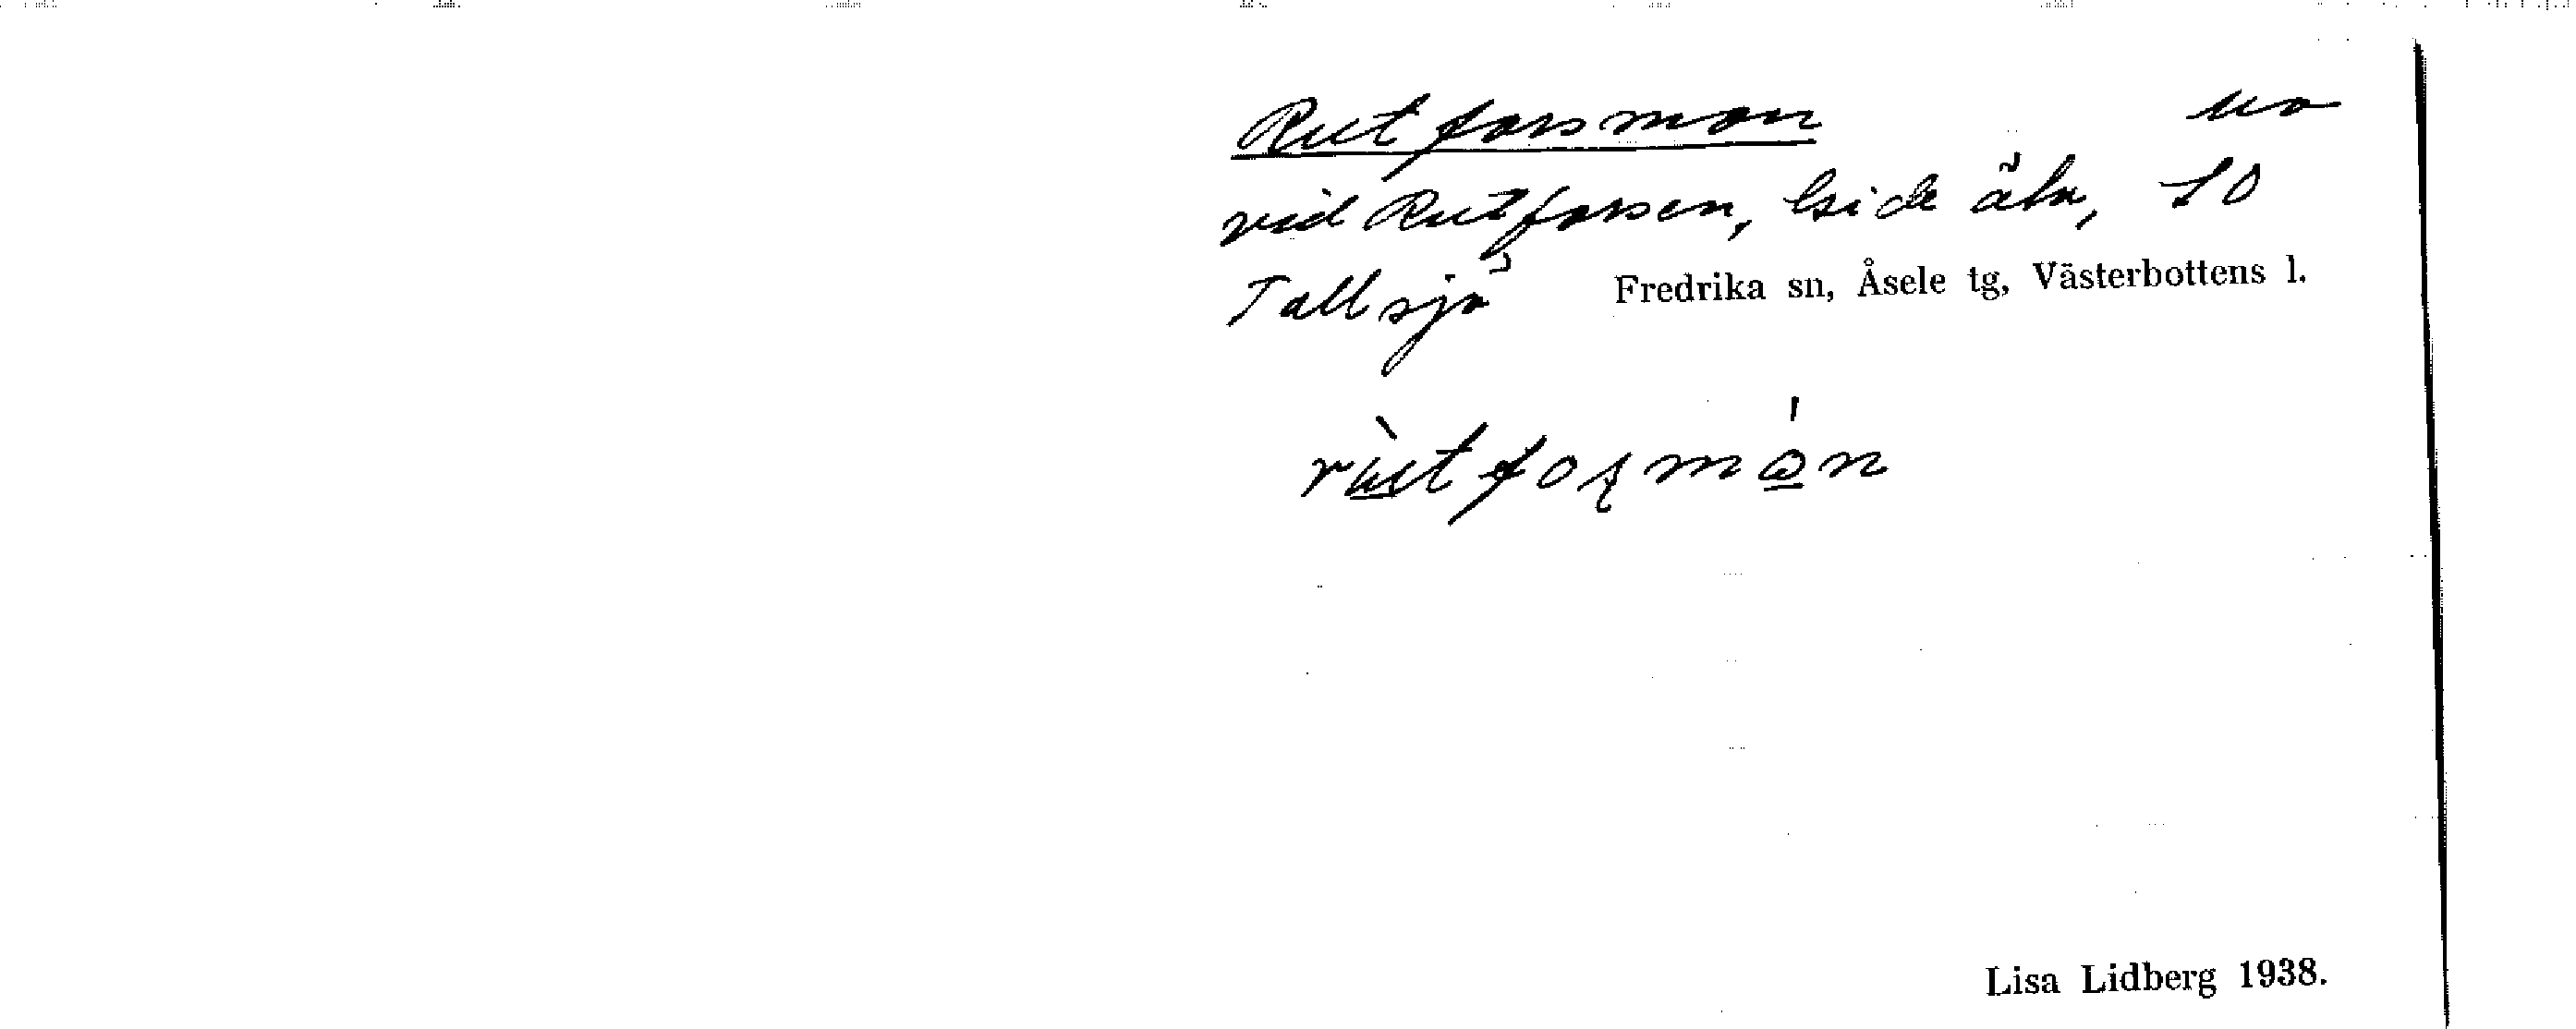 Rutforsmon
vid Rutforsen, bside älv, SO
Tallsjö Fredrika sn, Åsele tg, Västerbottens l.
Lisa Lidberg 1938.